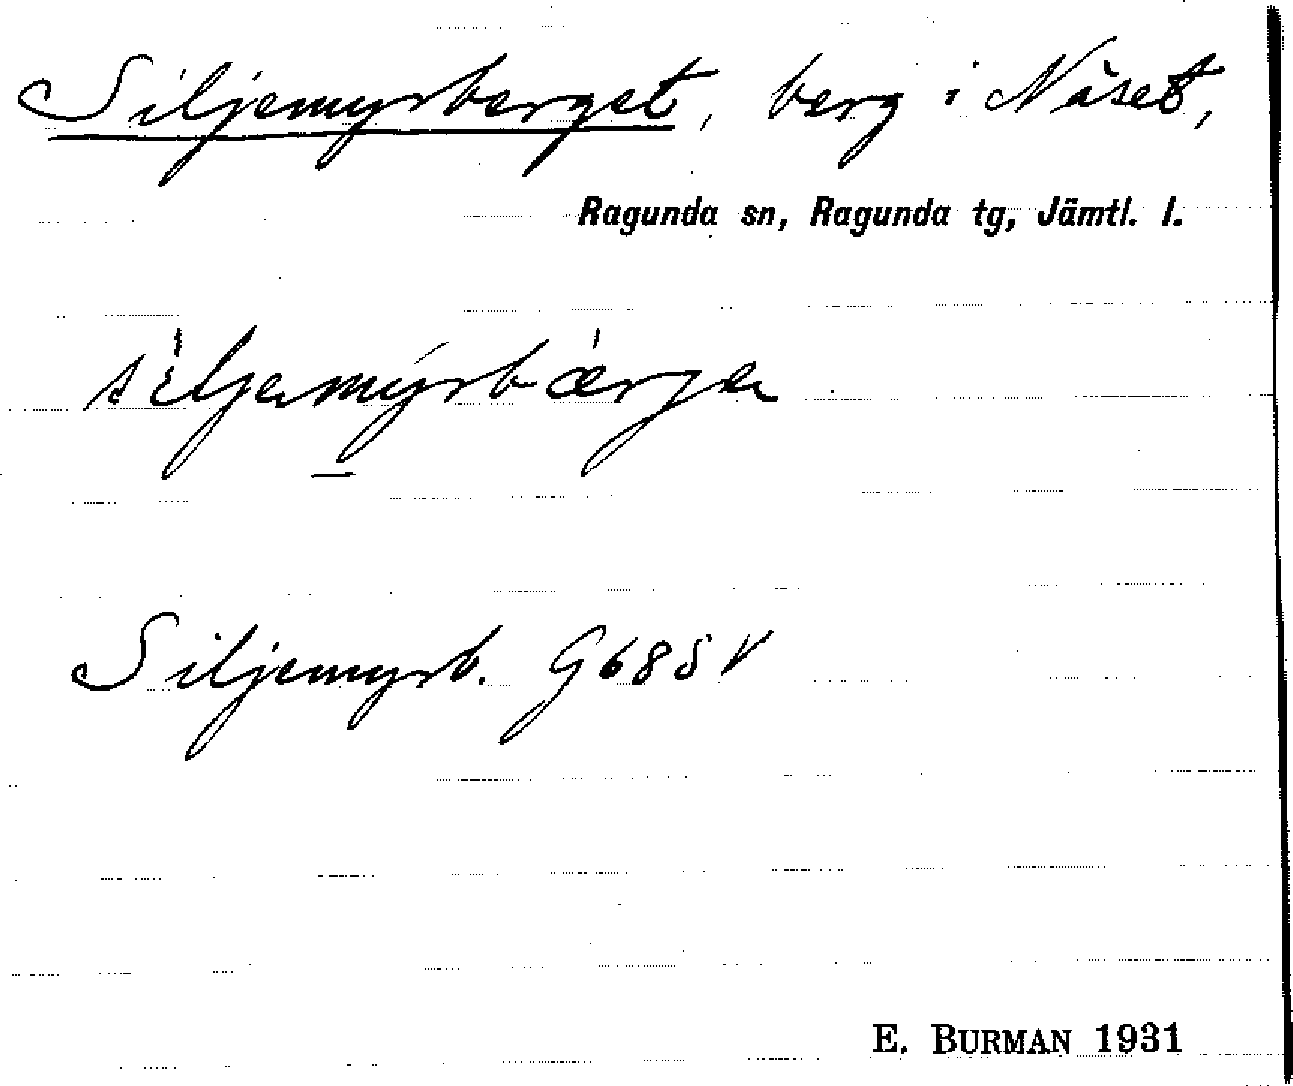 Siljemyrberget, berg i Näset,
Ragunda sn, Ragunda tg, Jämtl. l.
siljamyrbærjа
Siljemyrb. G68SV
E. BURMAN 1931